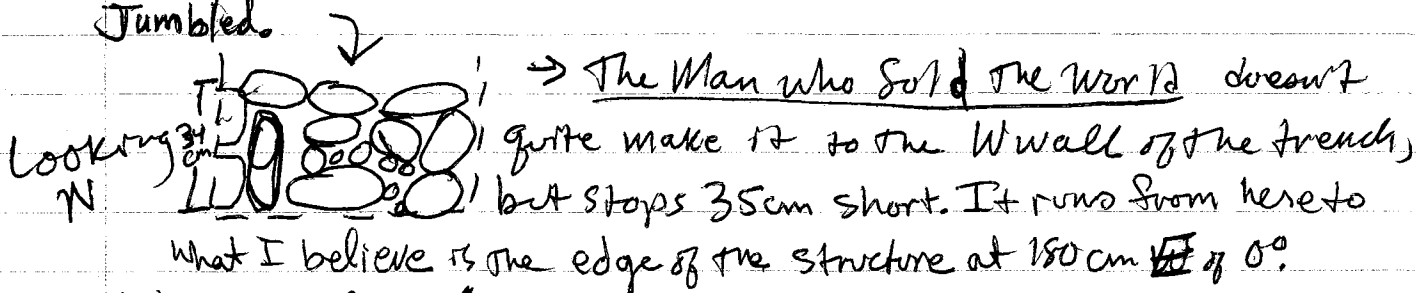 Jumbled.
→ The Man who Sold The World doesn't
Looking N
34 cm
quite make it to the W wall of the trench,
but stops 35cm short. It runs from here to
what I believe is the edge of the structure at 180 cm of 0°.